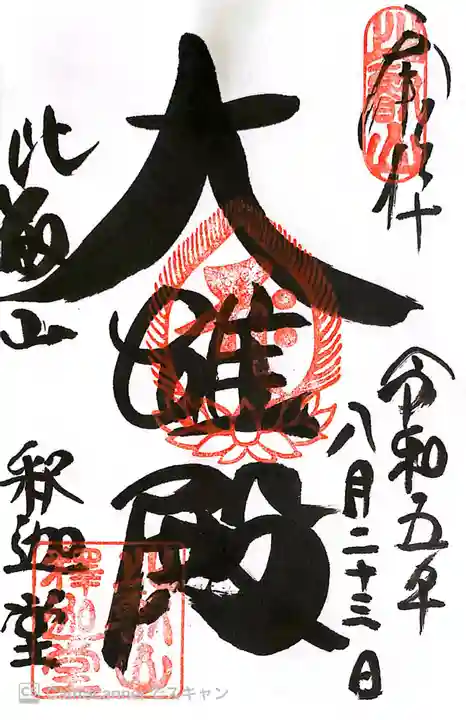 奉拝
令和五年
八月二十三日
大雄殿
比叡山
釈迦堂
比叡山
釋迦堂
CamScanner でスキャン